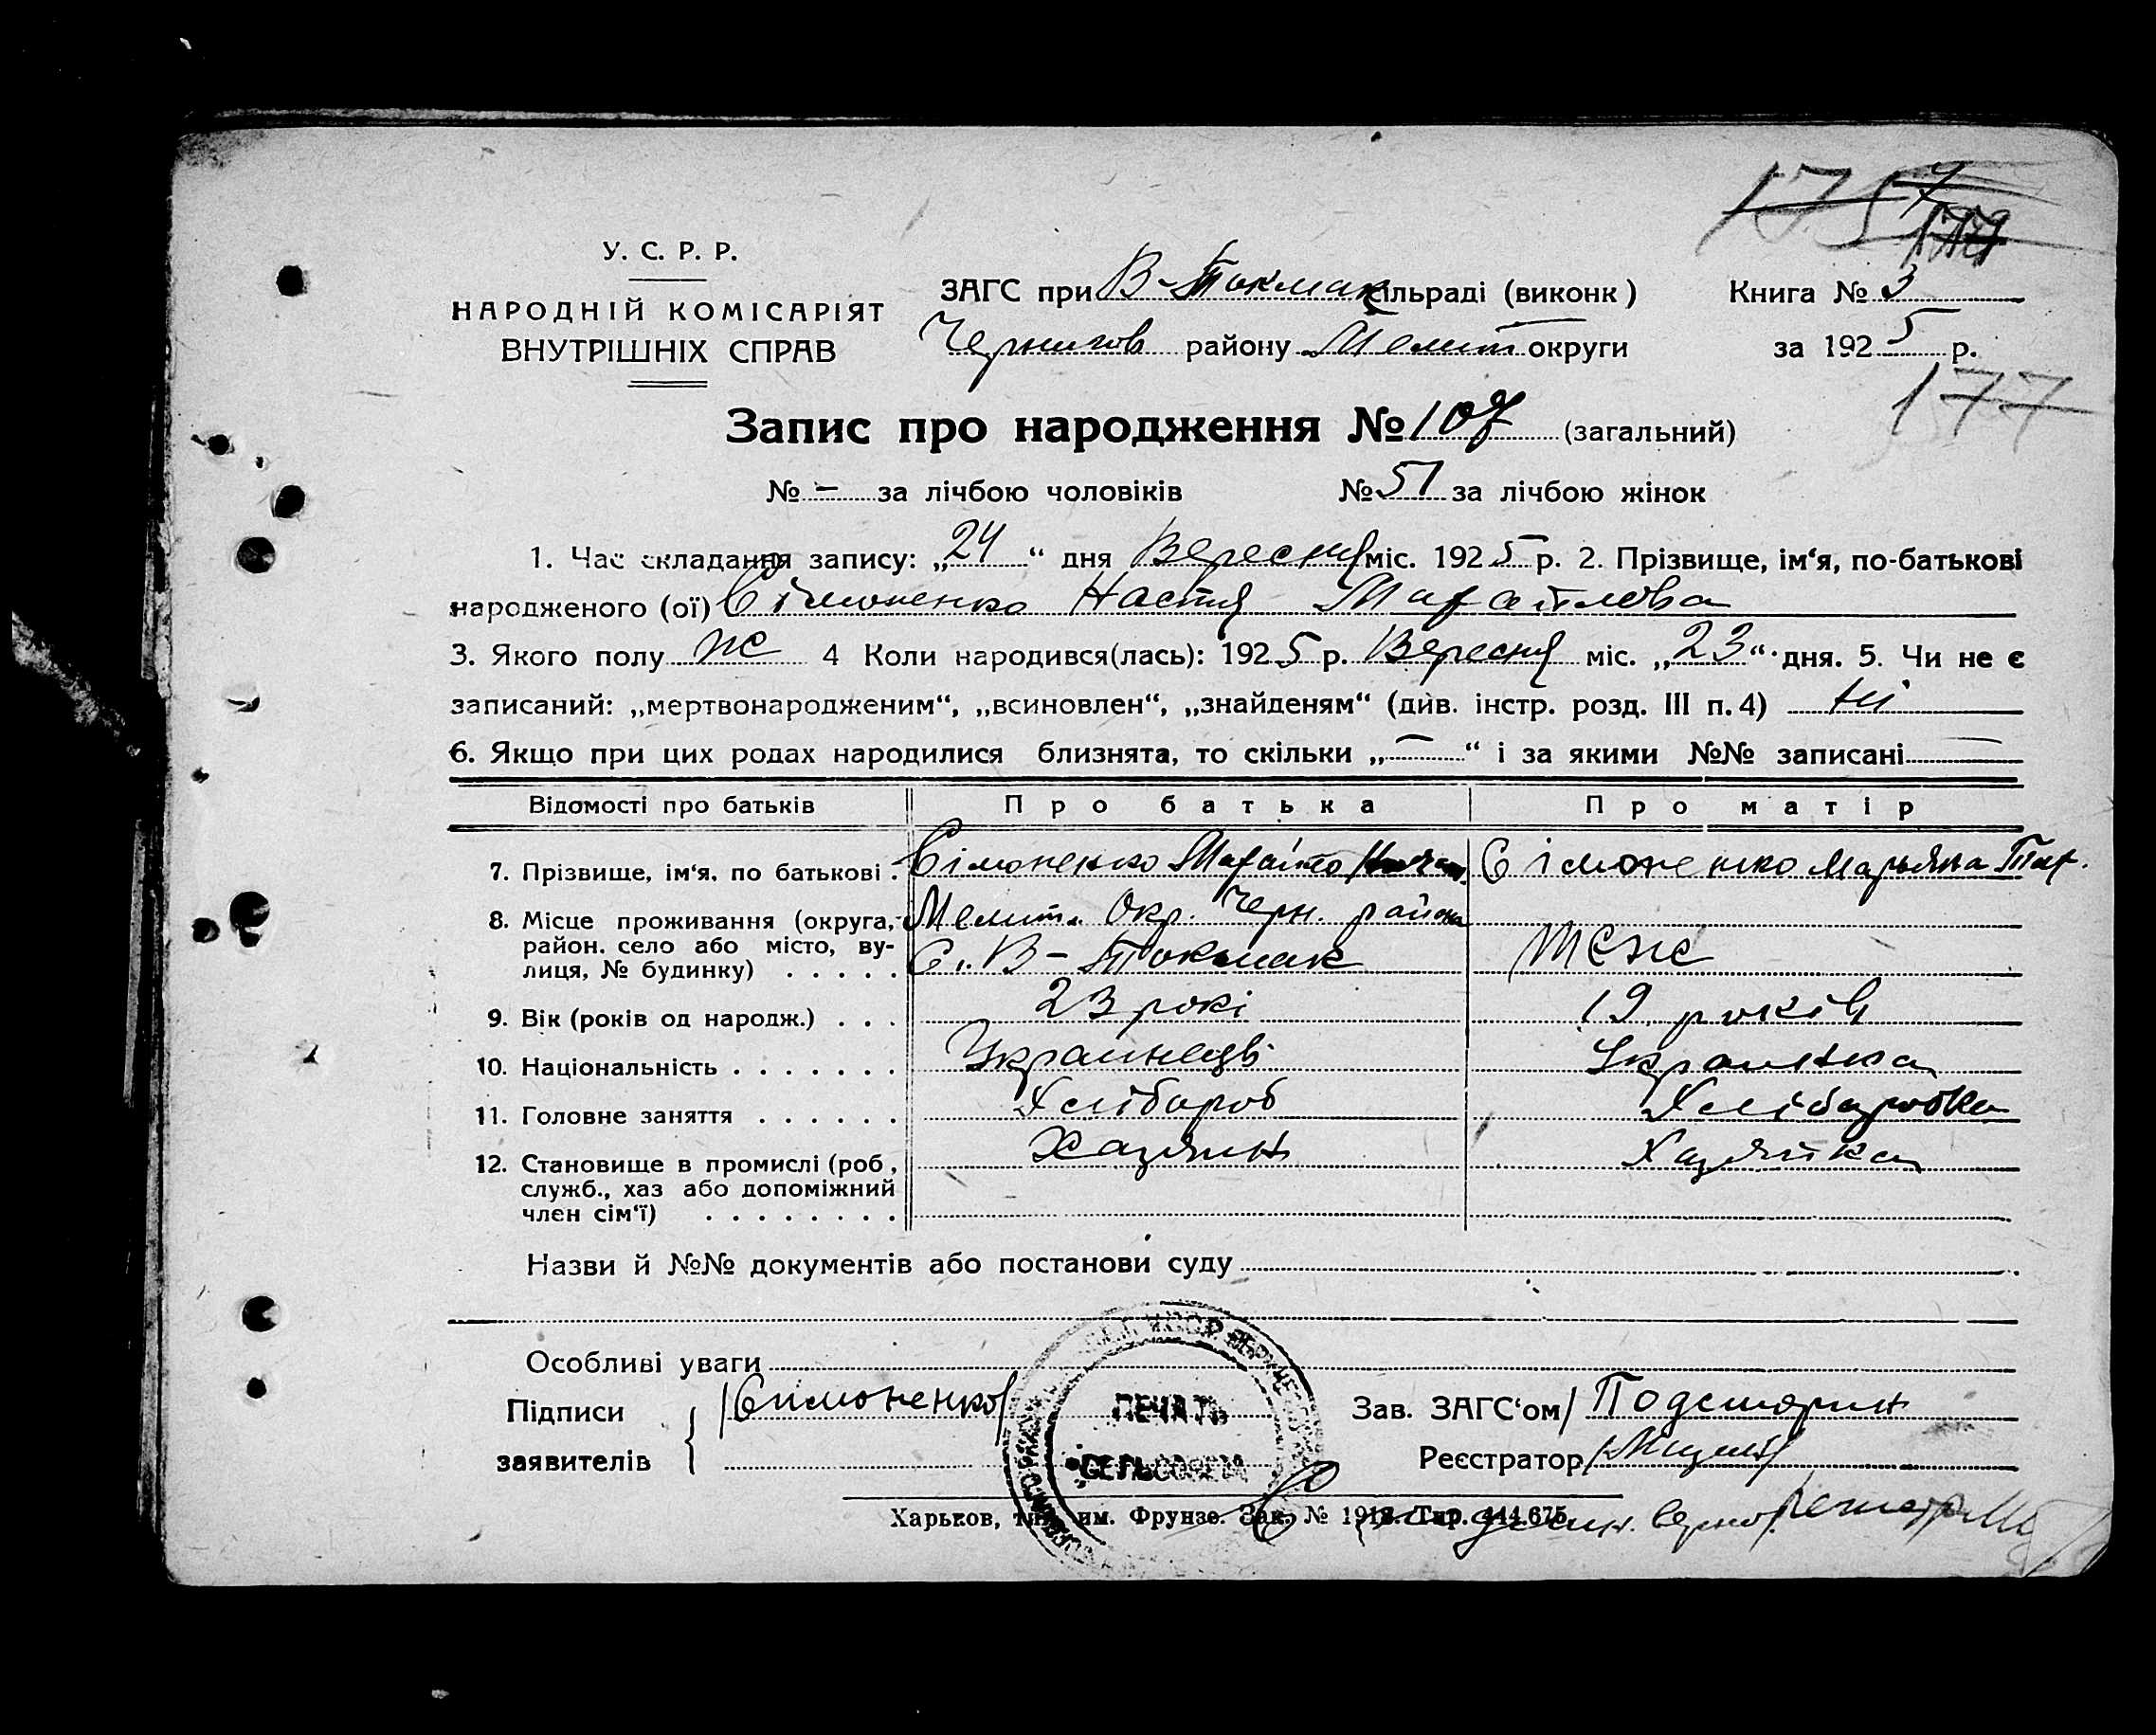 177
У. С. Р. Р.
НАРОДНІЙ КОМІСАРІЯТ
ВНУТРІШНІХ СПРАВ
ЗАГС при В-Токмак сільраді (виконк)
Чернигов району Мелит округи
Книга № 3
за 1925 р.
177
Запис про народження № 107 (загальний)
№ – за лічбою чоловіків № 51 за лічбою жінок
1. Час складання запису: „24“ дня Вересня міс. 1925 р. 2. Прізвище, ім‘я, по-батькові
народженого (ої) Сімоненко Настя Михайлова
3. Якого полу ж 4 Коли народився(лась): 1925 р. Вересня міс. „23“ дня. 5. Чи не є
записаний: „мертвонародженим“, „всиновлен“, „знайденям“ (див. інстр. розд. III п. 4) ні
6. Якщо при цих родах народилися близнята, то скільки „—“ і за якими №№ записані —
Відомості про батьків Про батька Про матір
7. Прізвище, ім‘я, по батькові . Сімоненко Михайло Сімоненко Марьяна
8. Місце проживання (округа, район. село або місто, вулиця, № будинку) . . . . . Мелит. Окр. Черн. района
С. В-Токмак Теж
9. Вік (років од народж.) . . . 23 рокі 19 років
10. Національність . . . . . . . Украинець Украінка
11. Головне заняття . . . . . . Хлібороб Хліборобка
12. Становище в промислі (роб, служб., хаз або допоміжний член сім‘ї) . . . . . . . . Хазяин Хазяйка
Назви й №№ документів або постанови суду
Особливі уваги
Підписи заявителів Симоненко
ПЕЧАТЬ
СЕЛЬСОВЕТА
Зав. ЗАГС‘ом
Реєстратор
Харьков, тип. им. Фрунзе. Зак. № 1918. Тир. 444.675.